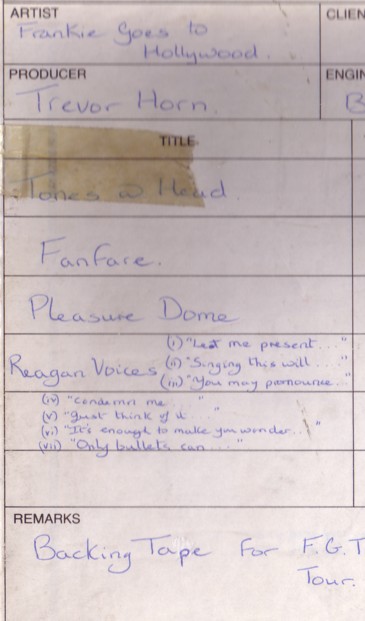 ARTIST
CLIEN
Frankie Goes to
Hollywood.
PRODUCER
ENGIN
Trevor Horn.
B
TITLE
Tones @ Head
Fanfare.
Pleasure Dome
Reagan Voices
(i) "Let me present..."
(ii) "Singing this will..."
(iii) "You may pronounce..."
(iv) "Condemn me..."
(v) "Just think of it..."
(vi) "It's enough to make you wonder..."
(vii) "Only bullets can..."
REMARKS
Backing Tape for F.G.T
Tour.